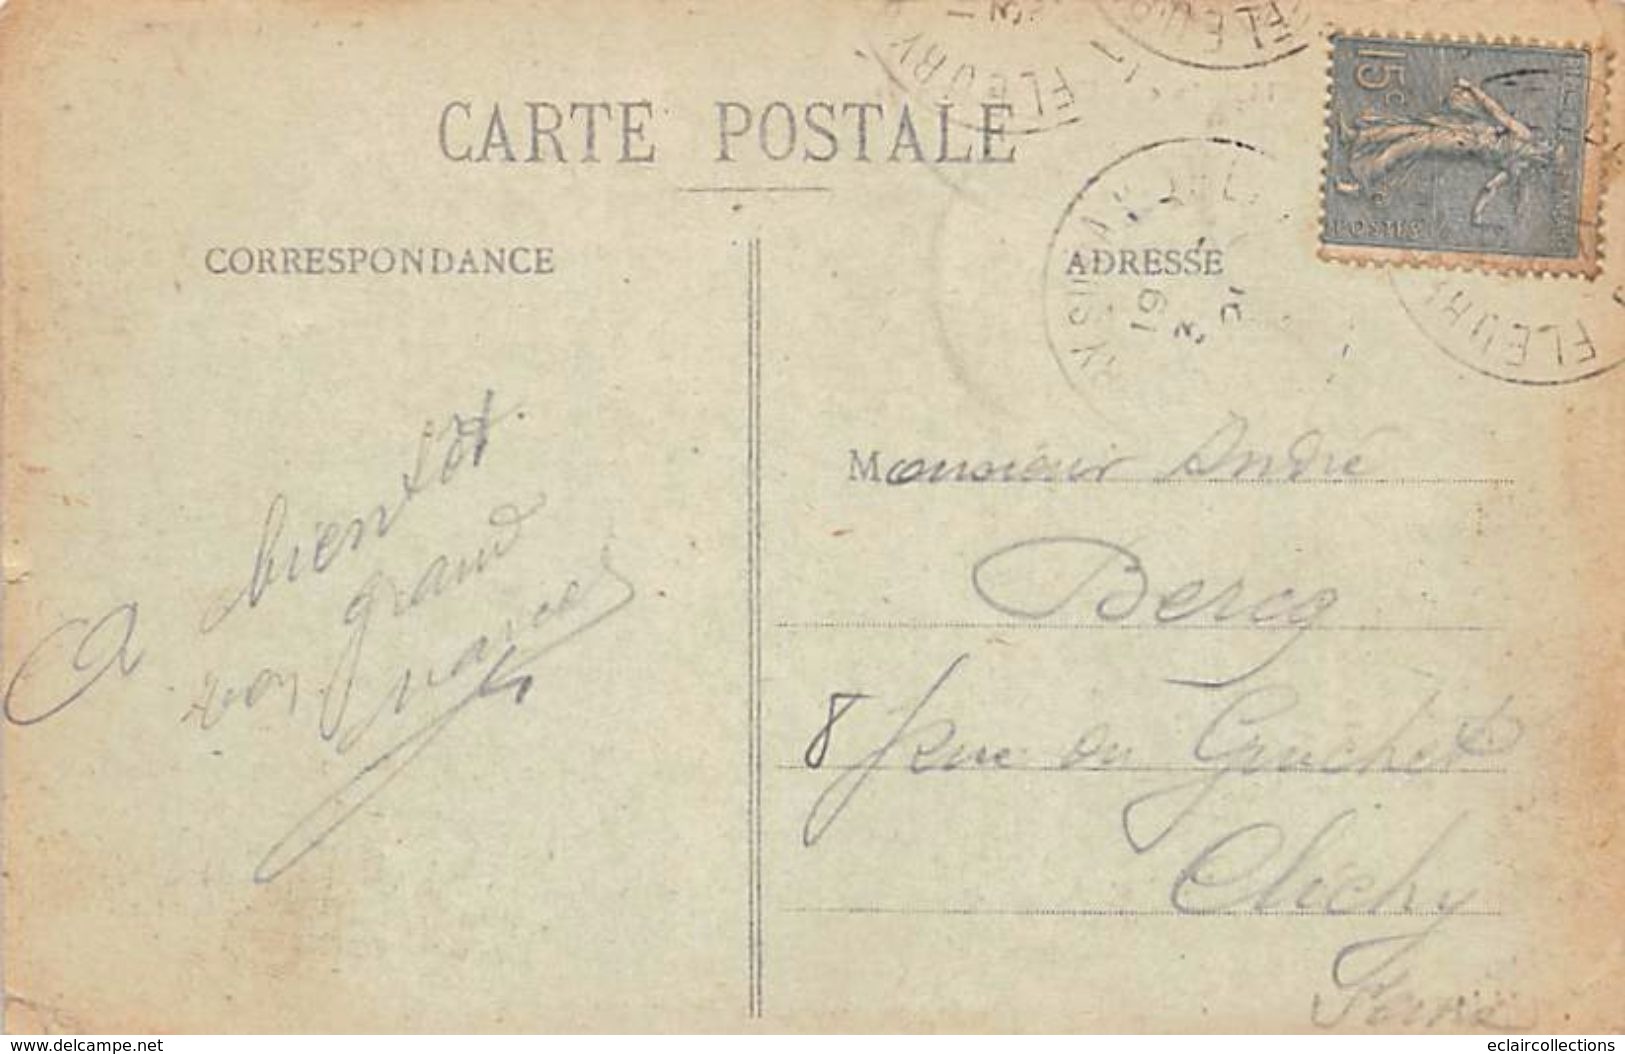 CARTE POSTALE
CORRESPONDANCE
ADRESSE
15c
POSTES
FLEURY
FLEU
FLEURY
19
A bientôt
ton grand
Marcel
Monsieur André
Bercq
8 rue du Guichet
Clichy
Seine
https://www.delcampe.net
eclaircollections